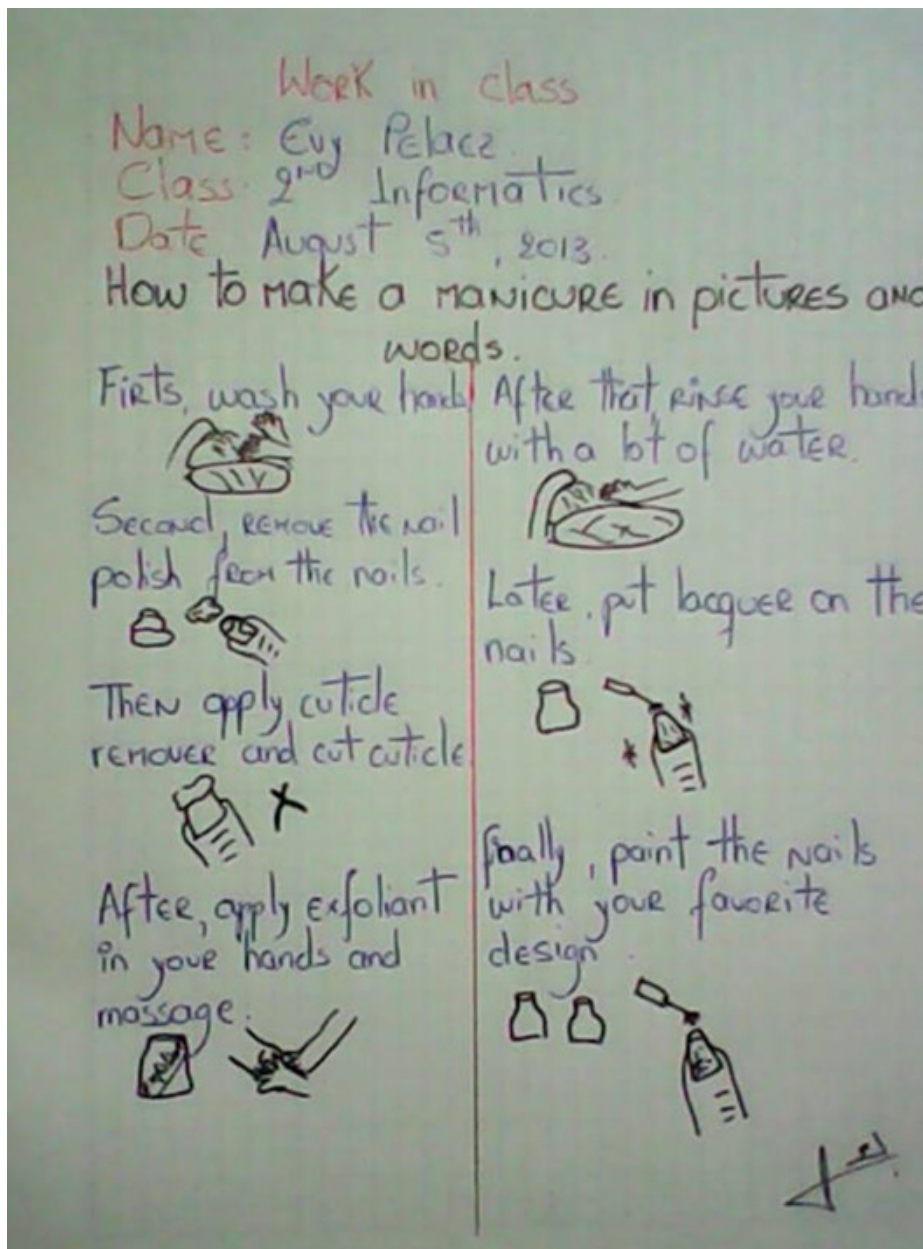 Work in class
Name: Evy Pelaez
Class: 2nd Informatics
Date August 5th, 2013.
How to make a manicure in pictures and
words.
Firts, wash your hands
Second, remove the nail
polish from the nails.
Then apply cuticle
remover and cut cuticle
After, apply exfoliant
in your hands and
massage.
After that, rinse your hand
with a lot of water.
Later, put lacquer on the
nails.
finally, paint the nails
with your favorite
design.